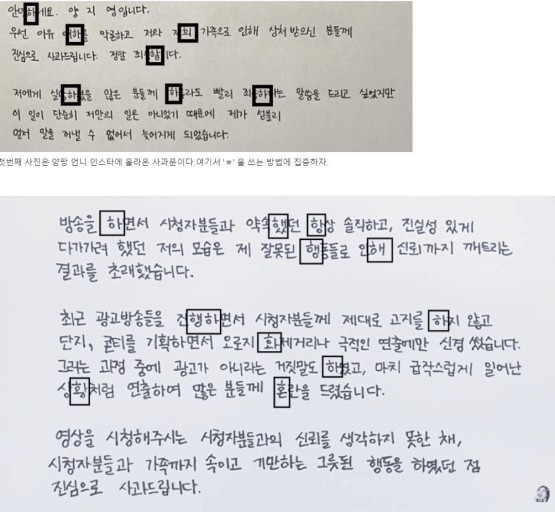 안녕하세요. 양 지 영입니다.
우선 이유 여하를 막론하고 저와 저희 가족으로 인해 상처 받으신 분들께
진심으로 사과드립니다. 정말 죄송합니다.
저에게 실망하셨을 많은 분들께 하루라도 빨리 죄송하다는 말씀을 드리고 싶었지만
이 일이 단순히 저만의 일은 아니었기 때문에 제가 섣불리
먼저 말을 꺼낼 수 없어서 늦어지게 되었습니다.
첫번째 사진은 양팡 언니 인스타에 올라온 사과문이다.여기서 'ㅎ' 을 쓰는 방법에 집중하자.
방송을 하면서 시청자분들과 약속했던 항상 솔직하고, 진실성 있게
다가가려 했던 저의 모습은 제 잘못된 행동들로 인해 신뢰까지 깨트리는
결과를 초래했습니다.
최근 광고방송들을 진행하면서 시청자분들께 제대로 고지를 하지 않고
단지, 콘티를 기획하면서 오로지 화제거리나 극적인 연출에만 신경 썼습니다.
그러는 과정 중에 광고가 아니라는 거짓말도 하였고, 마치 급작스럽게 일어난
상황처럼 연출하여 많은 분들께 혼란을 드렸습니다.
영상을 시청해주시는 시청자분들과의 신뢰를 생각하지 못한 채,
시청자분들과 가족까지 속이고 기만하는 그릇된 행동을 하였던 점
진심으로 사과드립니다.